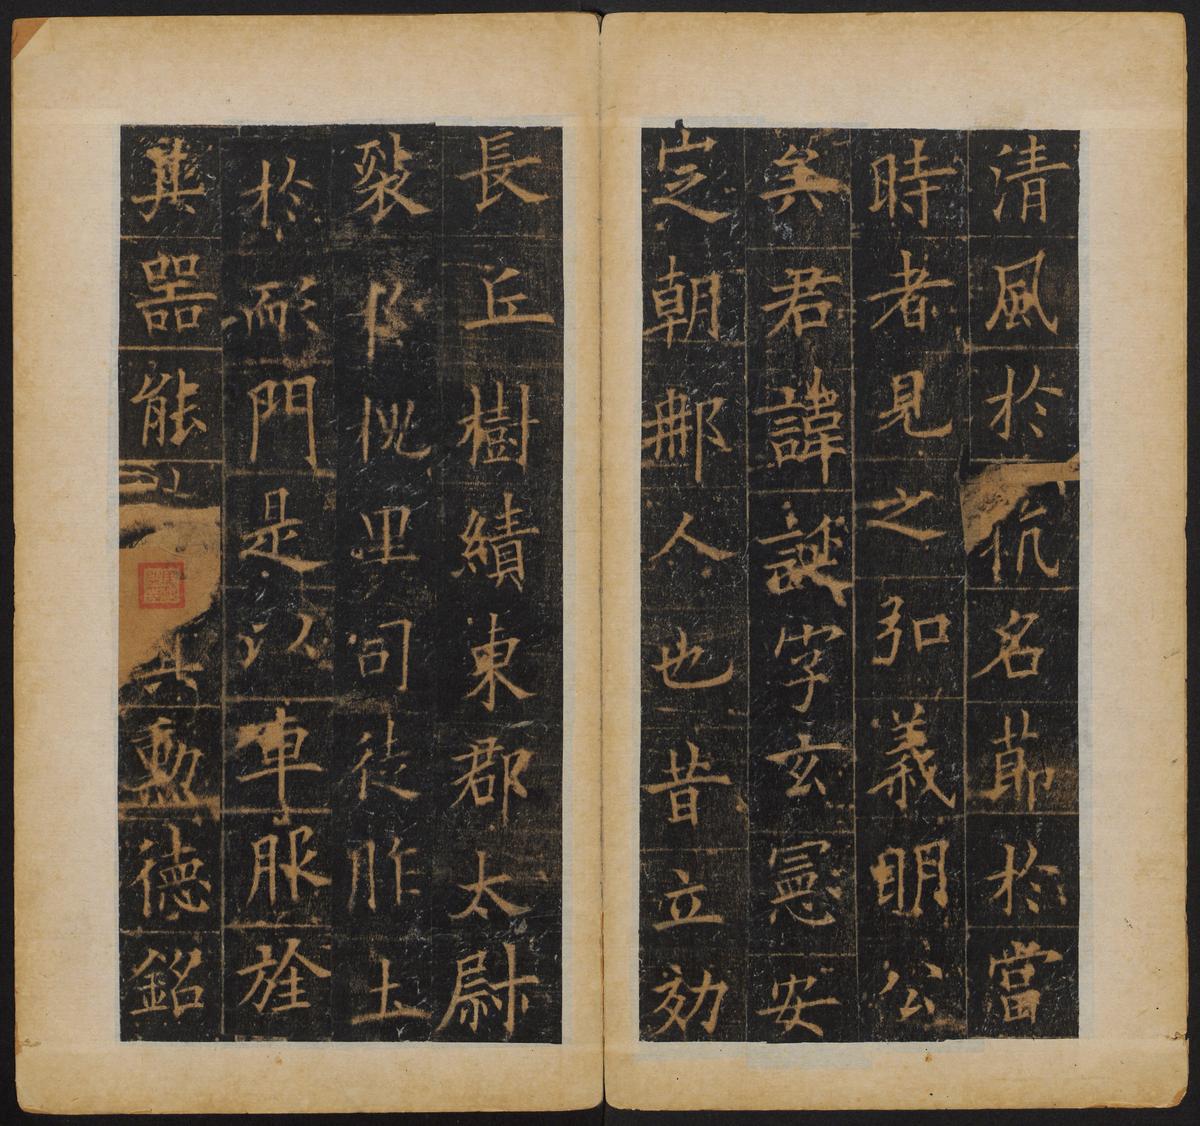 清風於抗名節於當
時者見之弘義明公
矣君諱誕字玄憲安
定朝那人也昔立効
長丘樹績東郡太尉
裂里司徒胙土
於耏門是以車服旌
其器能其勳德銘